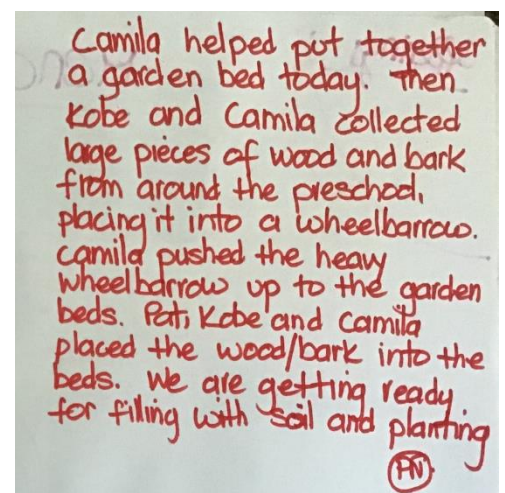 Camila helped put together
a garden bed today. Then
Kobe and Camila collected
large pieces of wood and bark
from around the preschool,
placing it into a wheelbarrow.
Camila pushed the heavy
wheelbarrow up to the garden
beds. Pat, Kobe and Camila
placed the wood/bark into the
beds. We are getting ready
for filling with soil and planting
PN